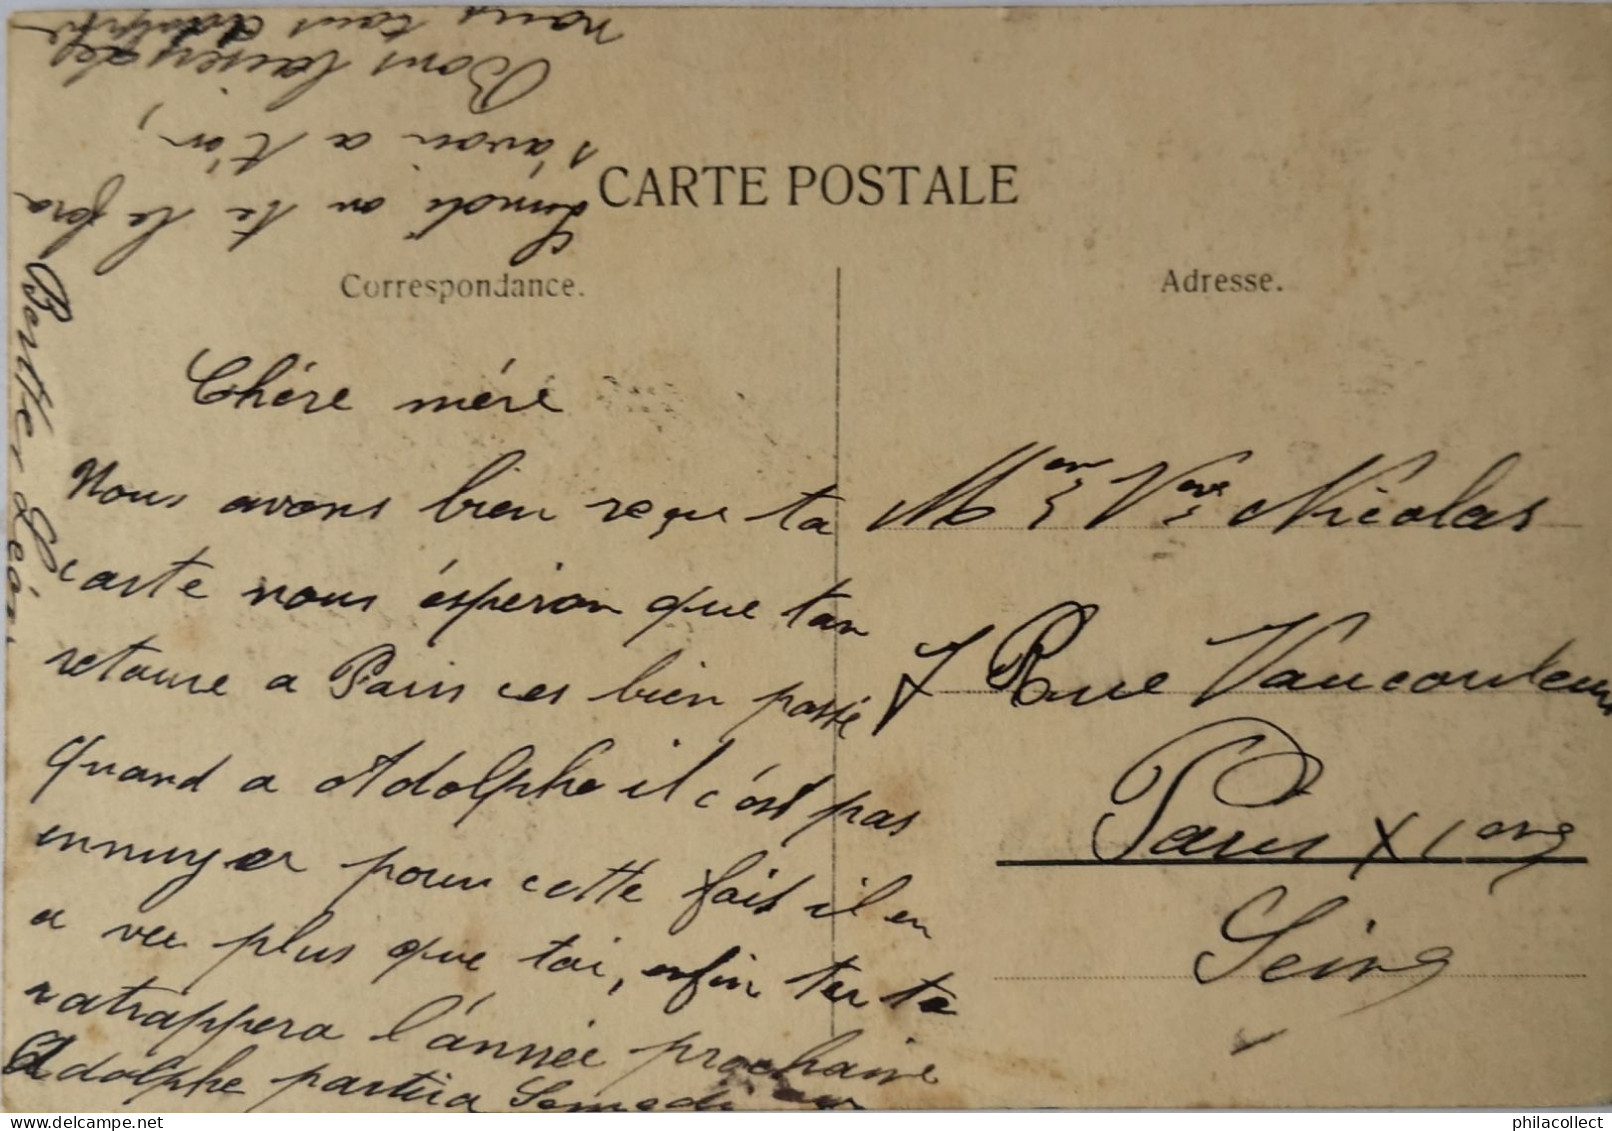 CARTE POSTALE
Correspondance.
Adresse.
Chére mére
Nous avons bien reçu ta
carte nous éspéron que ton
retoure a Paris ces bien passé
quand a Adolphe il c'est pas
ennuyer pour cette fois il en
a vu plus que toi, enfin tu te
ratrappera l'année prochaine
Adolphe partira Samedi ou
Lundi on te le fera
s'avoir a t'on,
Bons baisers de
nous tous Adolphe
Berthe Léon
Mme Vve Nicolas
7 Rue Vaucouleurs
Paris XIeme
Seine
philacollect